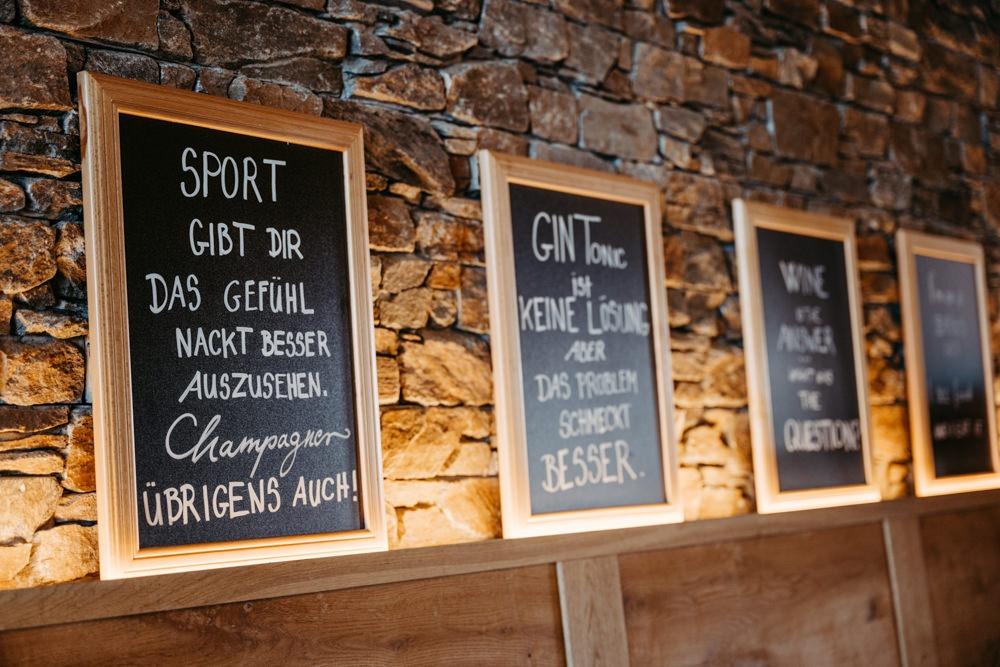 SPORT
GIBT DIR
DAS GEFÜHL
NACKT BESSER
AUSZUSEHEN.
Champagner
ÜBRIGENS AUCH!
GIN Tonic
ist
KEINE LÖSUNG
ABER
DAS PROBLEM
SCHMECKT
BESSER.
WINE
IS THE
ANSWER
WHAT WAS
THE
QUESTION?